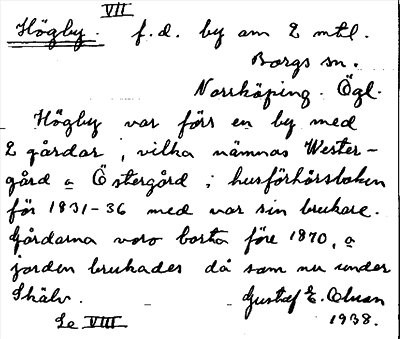 VII
Högby. f.d. by om 2 mtl.
Borgs sn.
Norrköping. Ögl.
Högby var förr en by med
2 gårdar, vilka nämnas Wester-
gård o Östergård i husförhörsboken
för 1831-36 med var sin brukare.
Gårdarna voro borta före 1870, o
jorden brukades då som nu under
Skälv.
Gustaf E. Olsson
Se VIII
1938.